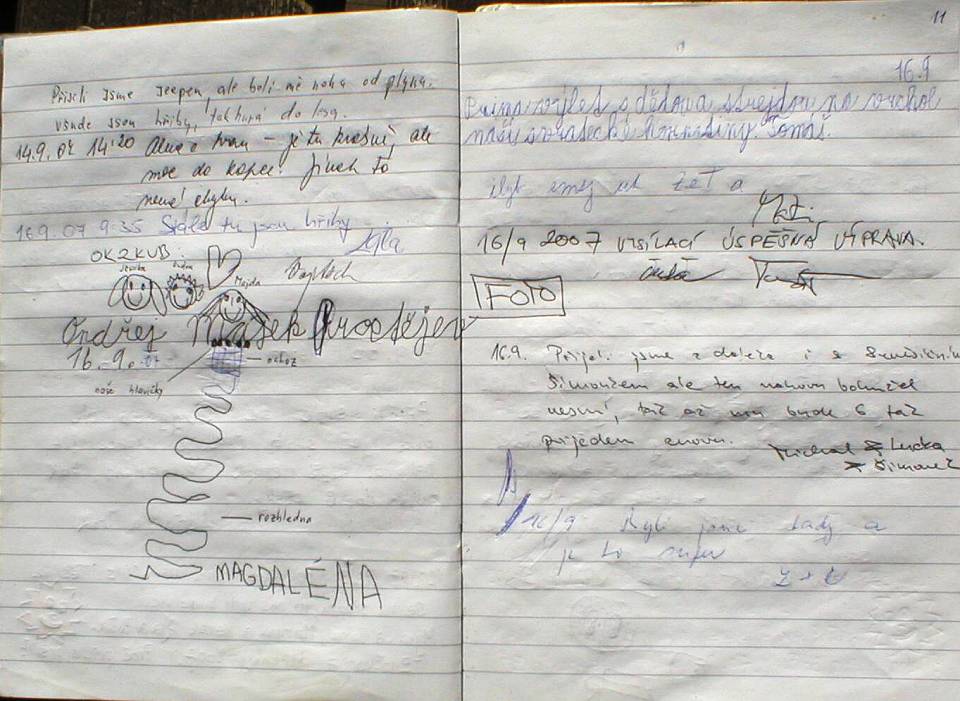 Přišli jsme jeepem, ale bolí mě noha od plynu.
všude jsou hřiby, tak hupá do lesa.
14.9.07 14:20 je tu krásně, ale
moc do kopce! Jinak to
nemá chybu.
16.9.07 9:35 Stále tu jsou hřiby
OK2KUB
Majda
Ondřej Mašek Prostějov
16.9.07
ochoz
naše hlavičky
rozhledna
MAGDALÉNA
11
16.9
Prima výlet s dědou a strejdou na vrchol
naší Tomáš.
16/9 2007 VYSÍLACÍ ÚSPĚŠNÁ VÝPRAVA.
FOTO
16.9. Přijeli jsme z daleka i s
Šimonkem ale ten nahoru bohužel
nesmí, tak až mu bude 6 tak
přijedem znovu.
Michal & Lucka
+ Šimonek
16/9 Byli jsme tady a
je to super